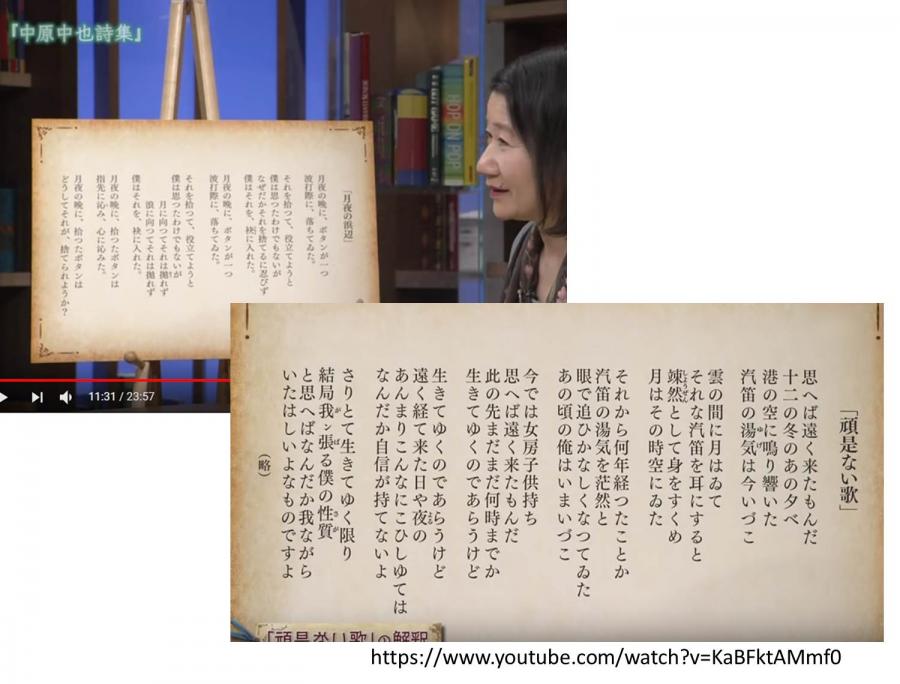 『中原中也詩集』
「月夜の浜辺」
月夜の晩に、ボタンが一つ
波打際に、落ちてゐた。
それを拾つて、役立てようと
僕は思つたわけでもないが
なぜだかそれを捨てるに忍びず
僕はそれを、袂に入れた。
月夜の晩に、ボタンが一つ
波打際に、落ちてゐた。
それを拾つて、役立てようと
僕は思つたわけでもないが
月に向つてそれは抛れず
浪に向つてそれは抛れず
僕はそれを、袂に入れた。
月夜の晩に、拾つたボタンは
指先に沁み、心に沁みた。
月夜の晩に、拾つたボタンは
どうしてそれが、捨てられようか?
HOP ON POP
11:31 / 23:57
「頑是ない歌」
思へば遠く来たもんだ
十二の冬のあの夕べ
港の空に鳴り響いた
汽笛の湯気は今いづこ
雲の間に月はゐて
それな汽笛を耳にすると
竦然として身をすくめ
月はその時空にゐた
それから何年経つたことか
汽笛の湯気を茫然と
眼で追ひかなしくなつてゐた
あの頃の俺はいまいづこ
今では女房子供持ち
思へば遠く来たもんだ
此の先まだまだ何時までか
生きてゆくのであらうけど
生きてゆくのであらうけど
遠く経て来た日や夜の
あんまりこんなにこひしゆては
なんだか自信が持てないよ
さりとて生きてゆく限り
結局我ン張る僕の性質
と思へばなんだか我ながら
いたはしいよなものですよ
(略)
「頑是ない歌」の解釈
https://www.youtube.com/watch?v=KaBFktAMmf0